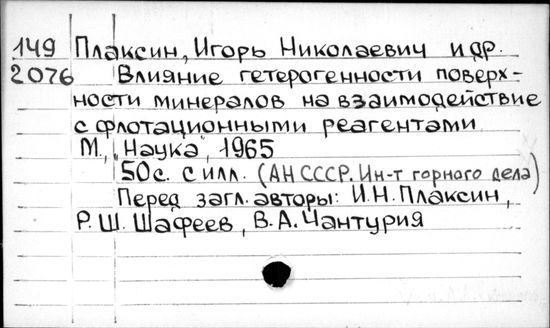 149 Плаксин, Игорь Николаевич и др.
2076 Влияние гетерогенности поверх-
ности минералов на взаимодействие
с флотационными реагентами
М., „Наука", 1965
50с. с илл. (АН СССР. Ин-т горного дела)
Перед загл. авторы: И.Н. Плаксин,
Р.Ш. Шафеев, В.А. Чантурия